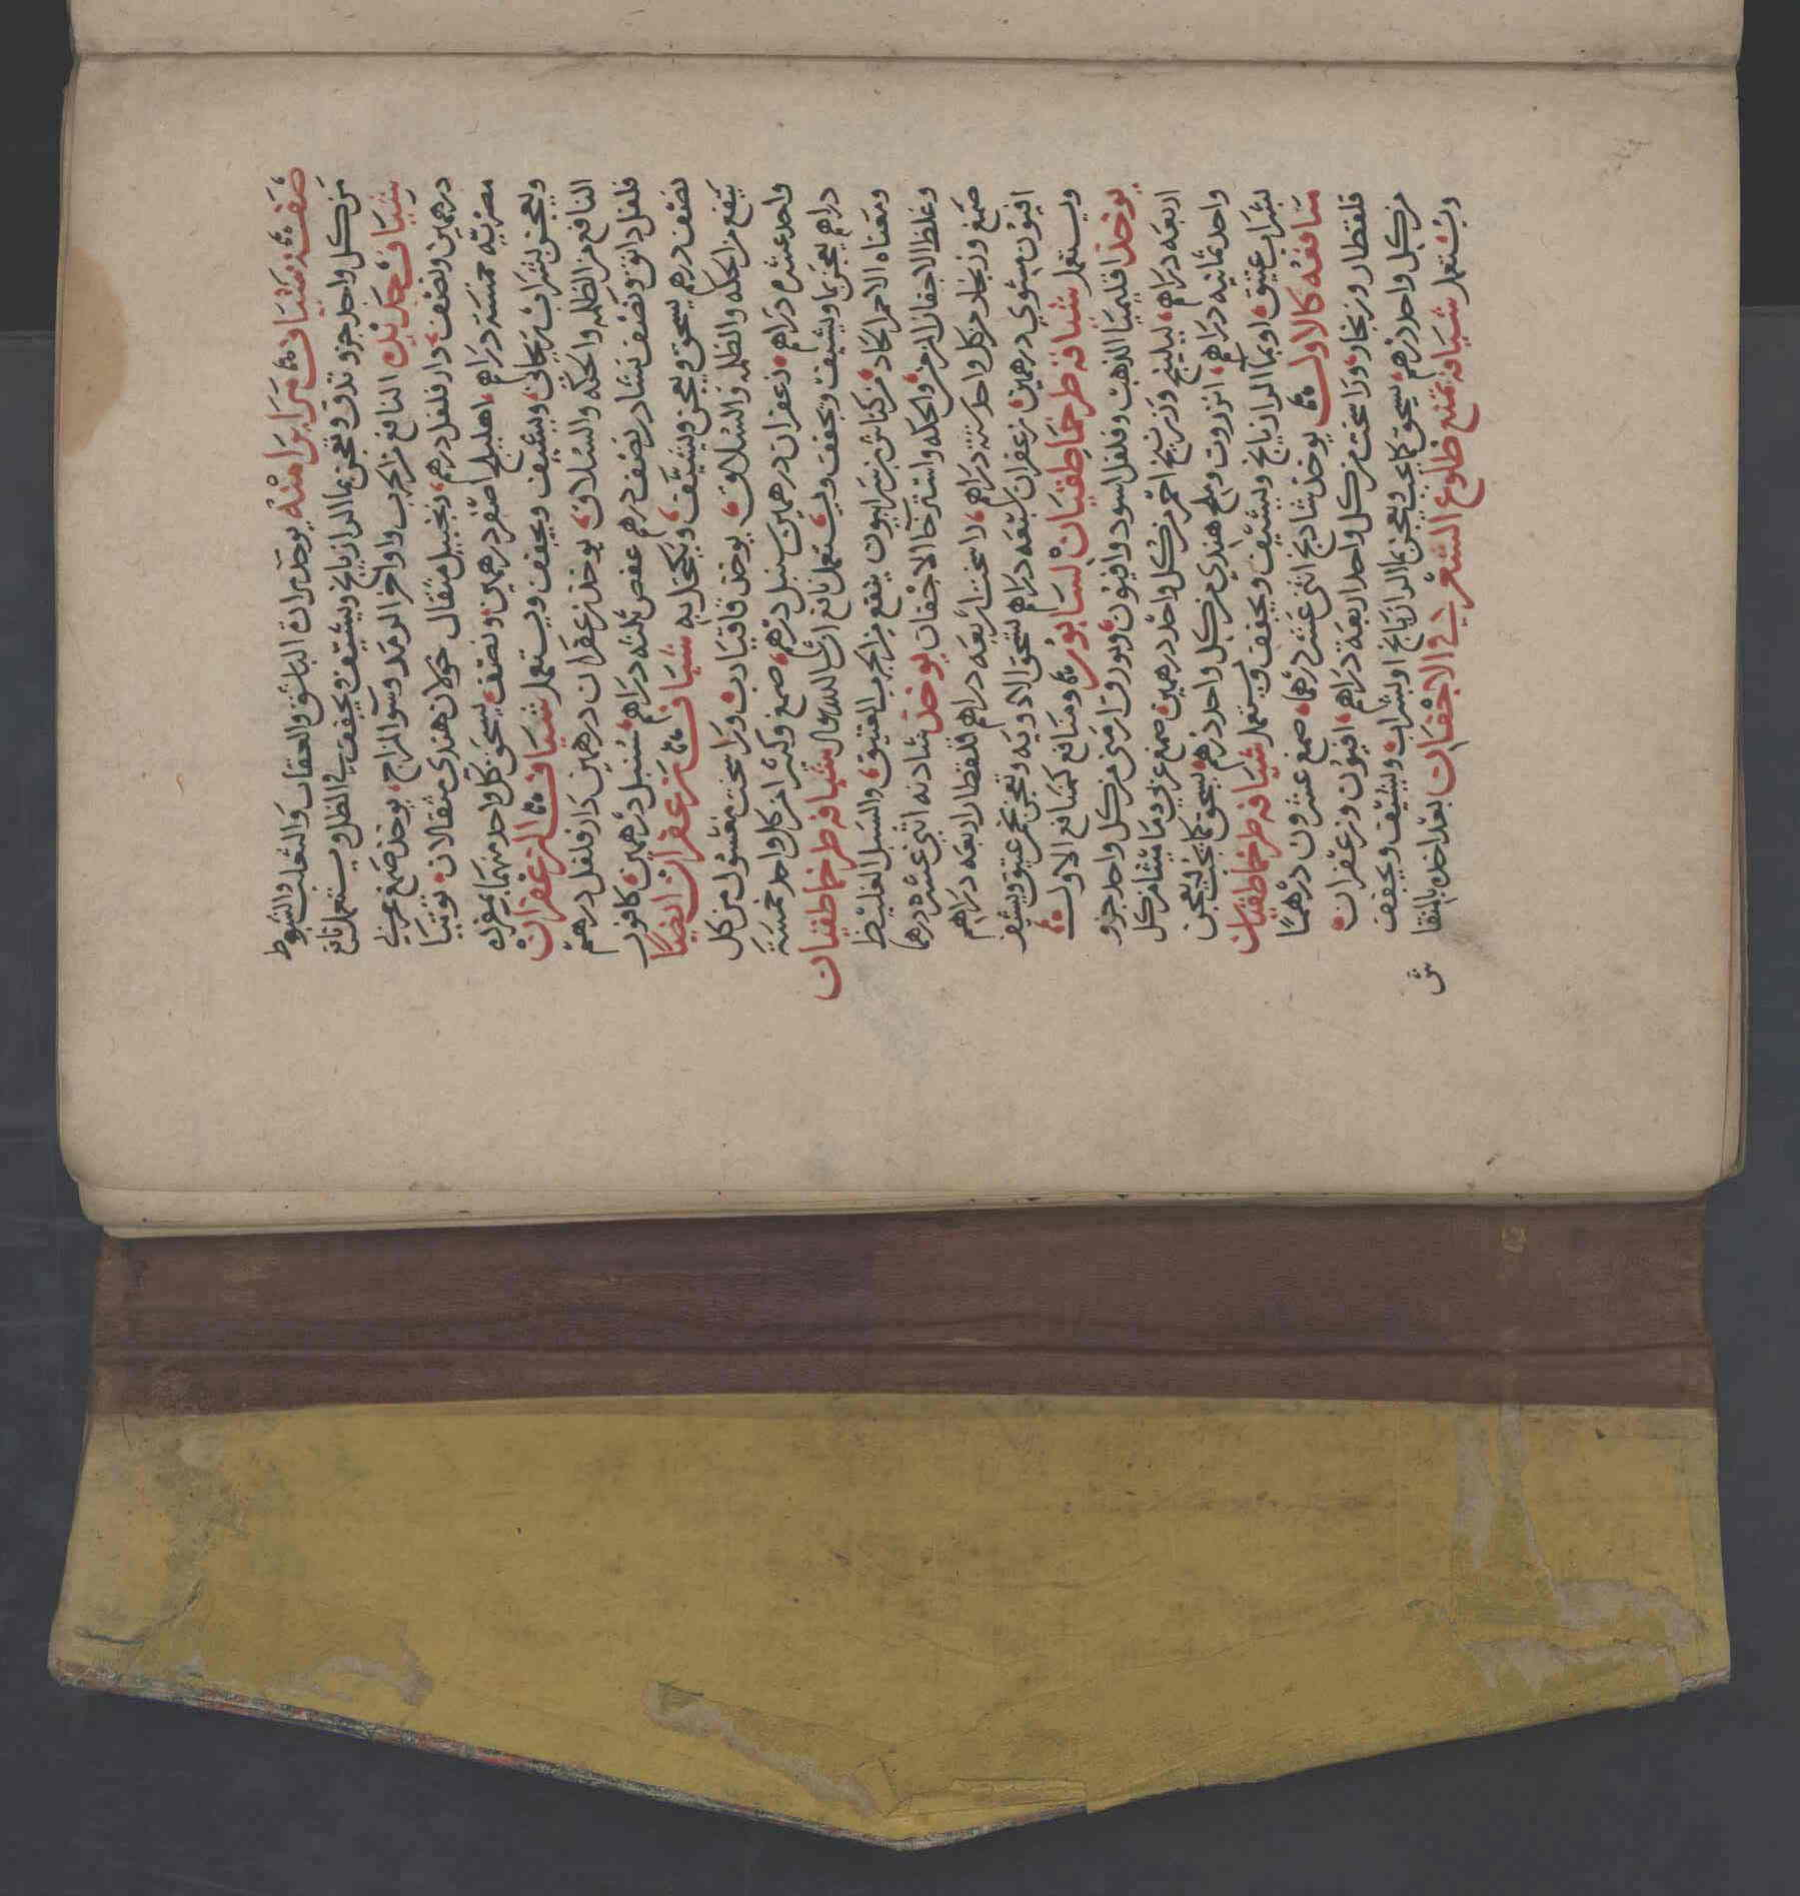 صفة شياف مرابر امنه يوخد مرارات الباشق والعقاب والثعلب والشبوط
من كل واحد جزو تدق وتعجن بما الرازيانج ويشيف ويجفف في الظل ويستعمل نافع
شياف خزنبل النافع من الجرب واواخر الرمد وسوا المزاج، يوخذ صمغ عربي
درهمين ونصف، دارفلفل درهم، زنجبيل مثقال خولان هندي مثقالان، توتيا
مصريه خمسة دراهم، اهليلج اصفر درهمين ونصف، يسحق كل واحد منهما بمفرده
ويعجن بشراب ريحاني، ويشيف ويجفف ويستعمل شياف الزعفران
النافع من الظلمه والحكه والسلاق، يوخذ زعفران درهمين دارفلفل درهم
فلفل دانق ونصف نشادر نصف درهم عفص ثلثه دراهم، سنبل درهمين، كافور
نصف درهم يسحق ويعجن ويشيف، ويكتحل به شياف زعفران ايضا
ينفع من الحكه والظلمه والسلاق، يوخذ قاقيا وراسخت مغسول من كل
واحد عشره دراهم، زعفران درهمين سنبل درهم، صمغ وكثيرا من كل واحد خمسة
دراهم يعجن بما ويشيف ويجفف ويستعمل نافع ان شا الله تعالى شيافه طرخماطيقان
ومعناه الاحمر الحاد، من كناش بن سرابيون ينفع من الجرب العتيق، والسبل الغليظ
وغلظ الاجفان المزمن، والحكه واسترخا الاجفان يوخذ شادنه اثني عشره درهما
صمغ وزنجار من كل واحد ستة دراهم، راسخت اربعه دراهم قلقطار اربعه دراهم
افيون مشوي درهمين، زعفران سبعه دراهم تسحق الادويه وتعجن بخمر عتيق ويشيف
ويستعمل شيافه طرخماطقيان لسابور ومنافع كمنافع الاول
يوخذ اقليميا الذهب وفلفل اسود وافيون، وبورق ارمني من كل واحد جزو
اربعه دراهم، ليلينج وزرنيخ احمر من كل واحد درهمين، صمغ عربي وماميثا من كل
واحد ثمانيه دراهم، انزروت وملح هندي من كل واحد درهم، يسحق كما يجب ويعجن
بشراب عتيق، او بما الرازيانج ويشيف ويجفف ويستعمل شيافه طرخماطقيان
منافعه كالاول يوخذ شادنج اثنى عشر درهما، صمغ عشرون درهما
قلقطار وزنجار، وراسخت من كل واحد اربعة دراهم، افيون وزعفران
من كل واحد درهم، يسحق كما يجب ويعجن بما الرازيانج او بشراب ويشيف ويجفف
ويستعمل شيافه تمنع طلوع الشعر في الاجفان بعد اخذه بالمنقاش